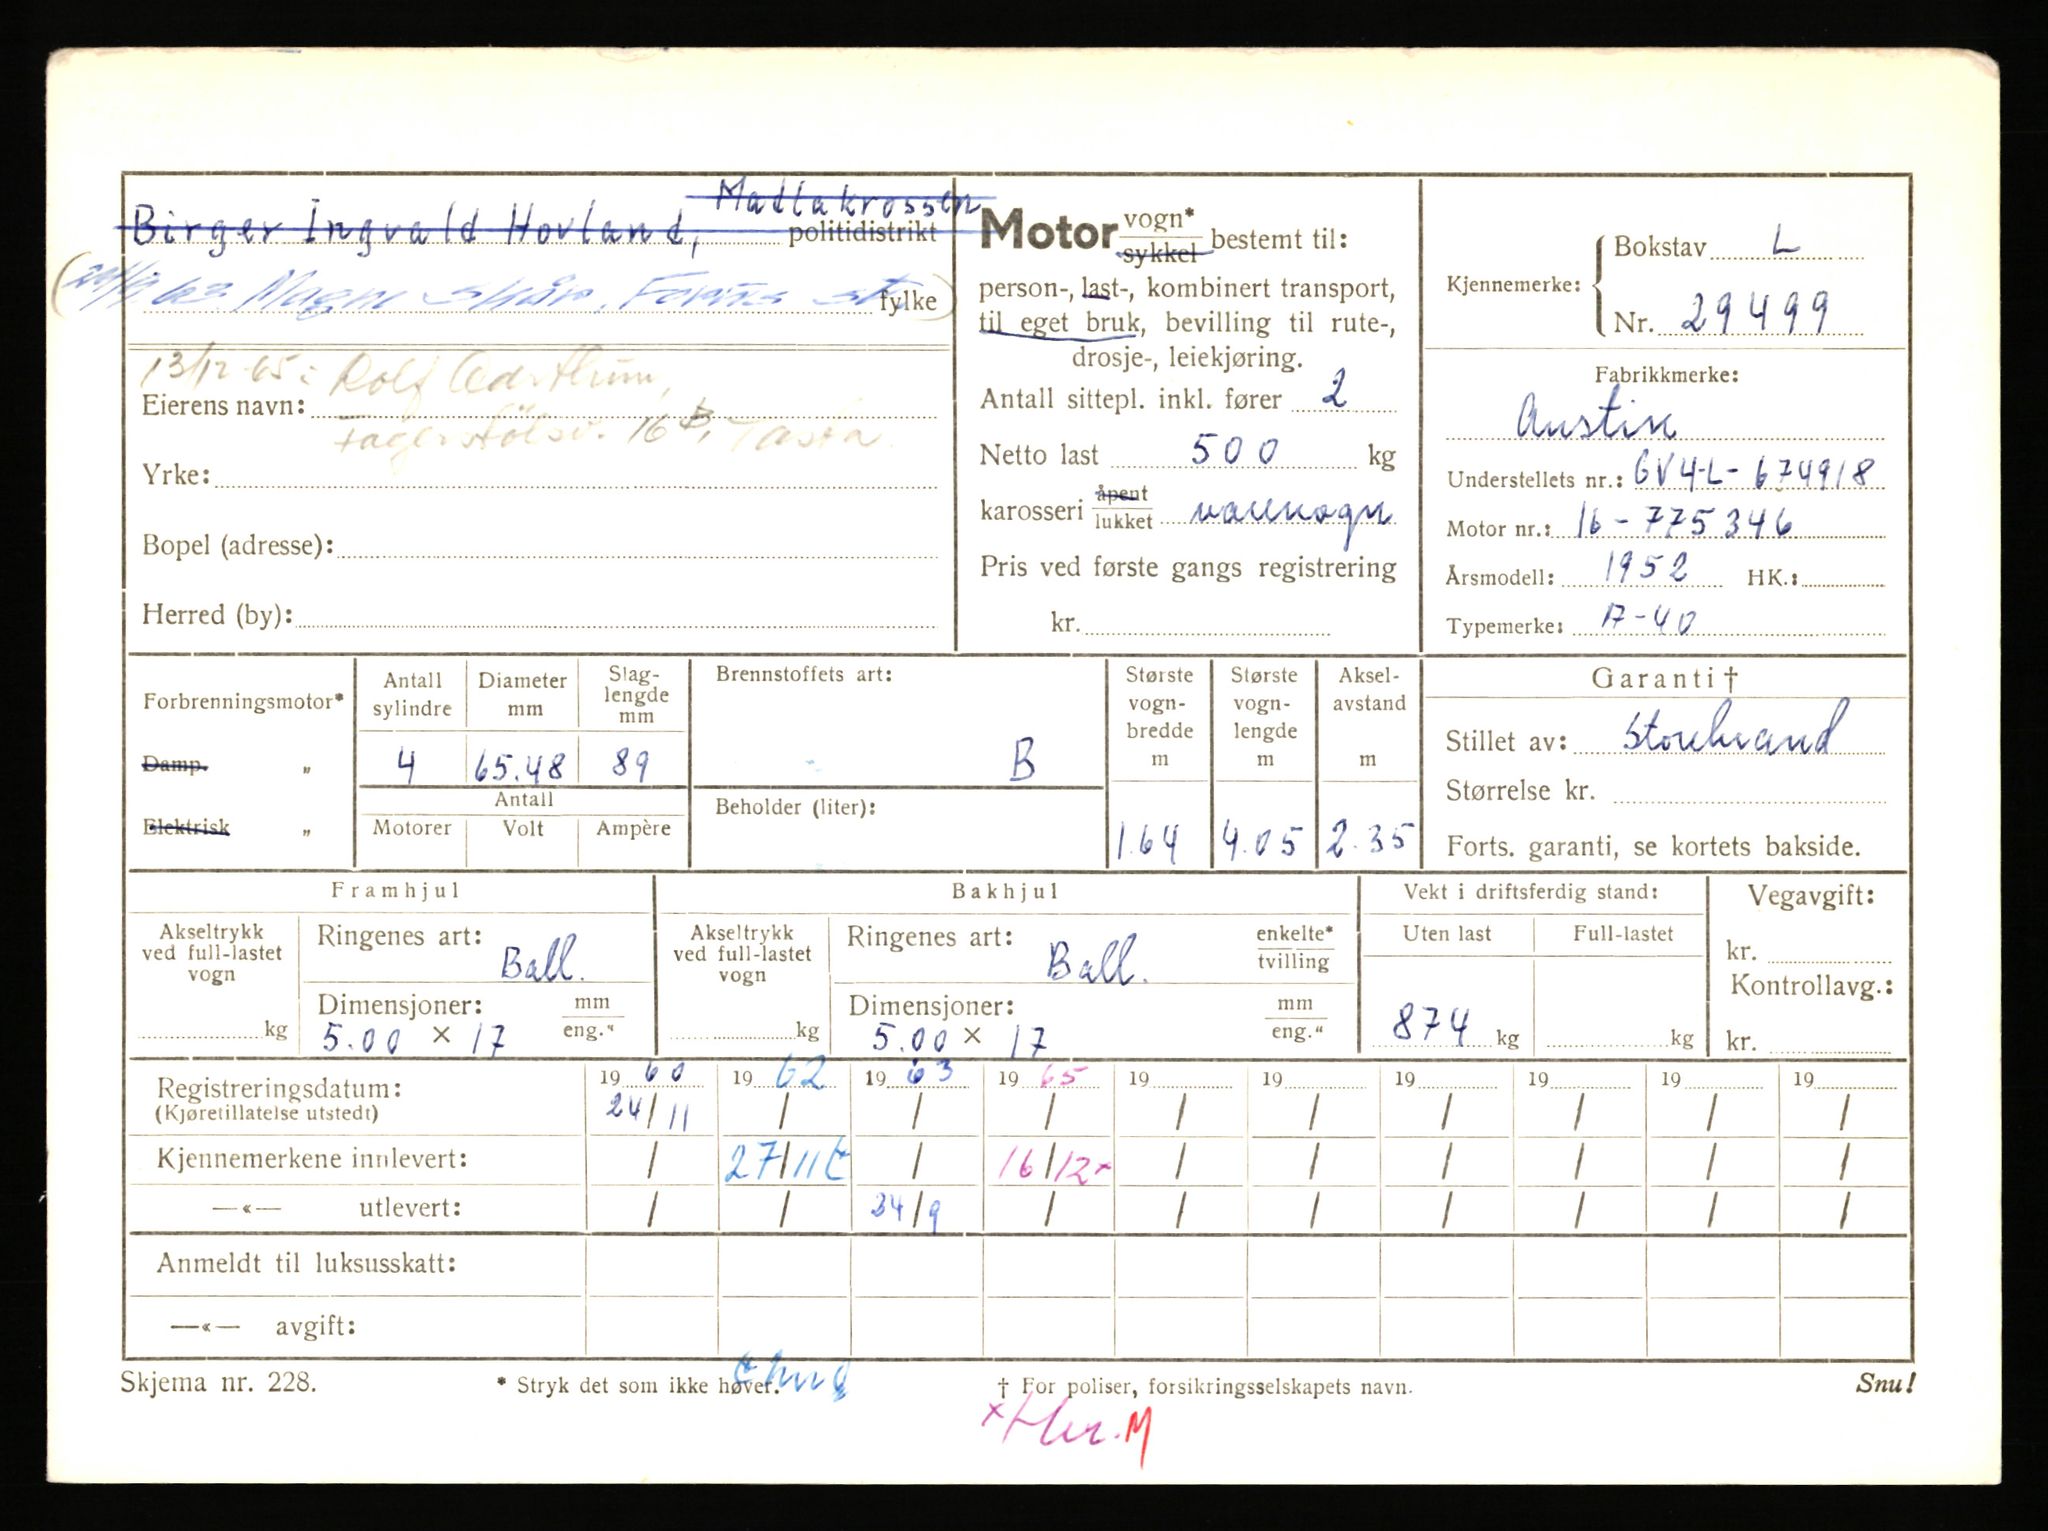 Madlakrossen
Birger Ingvald Hovland, politidistrikt
63 Magne Skåre, Forus st fylke
13/12-65: Rolf
Eierens navn:
16 B, Tasta
Yrke:
Bopel (adresse):
Herred (by):
Motor vogn* sykkel bestemt til:
person-, last-, kombinert transport,
til eget bruk, bevilling til rute-,
drosje-, leiekjøring.
Antall sittepl. inkl. fører 2
Netto last 500 kg
karosseri åpent lukket varevogn
Pris ved første gangs registrering
kr.
Kjennemerke: Bokstav L
Nr. 29499
Fabrikkmerke:
Austin
Understellets nr.: GV4-L-674918
Motor nr.: 16-775346
Årsmodell: 1952 HK.:
Typemerke: A-40
Forbrenningsmotor*
Damp. „
Elektrisk „
Antall sylindre
4
Diameter mm
65.48
Slaglengde mm
89
Antall
Motorer Volt Ampère
Brennstoffets art:
B
Beholder (liter):
Største vognbredde m
1.64
Største vognlengde m
4.05
Akselavstand m
2.35
Garanti †
Stillet av: Storebrand
Størrelse kr.
Forts. garanti, se kortets bakside.
Framhjul
Akseltrykk ved full-lastet vogn
kg
Ringenes art:
Ball.
Dimensjoner: mm eng."
5.00 × 17
Bakhjul
Akseltrykk ved full-lastet vogn
kg
Ringenes art: enkelte* tvilling
Ball.
Dimensjoner: mm eng."
5.00 × 17
Vekt i driftsferdig stand:
Uten last Full-lastet
874 kg kg
Vegavgift:
kr.
Kontrollavg.:
kr.
Registreringsdatum: 19 60 19 62 19 63 19 65 19 19 19 19 19 19
(Kjøretillatelse utstedt) 24/11 / / / / / / / / /
Kjennemerkene innlevert: / 27/11 / 16/12× / / / / / /
—«— utlevert: / / 24/9 / / / / / / /
Anmeldt til luksusskatt:
—«— avgift:
Skjema nr. 228. * Stryk det som ikke høver. † For poliser, forsikringsselskapets navn. Snu!
M